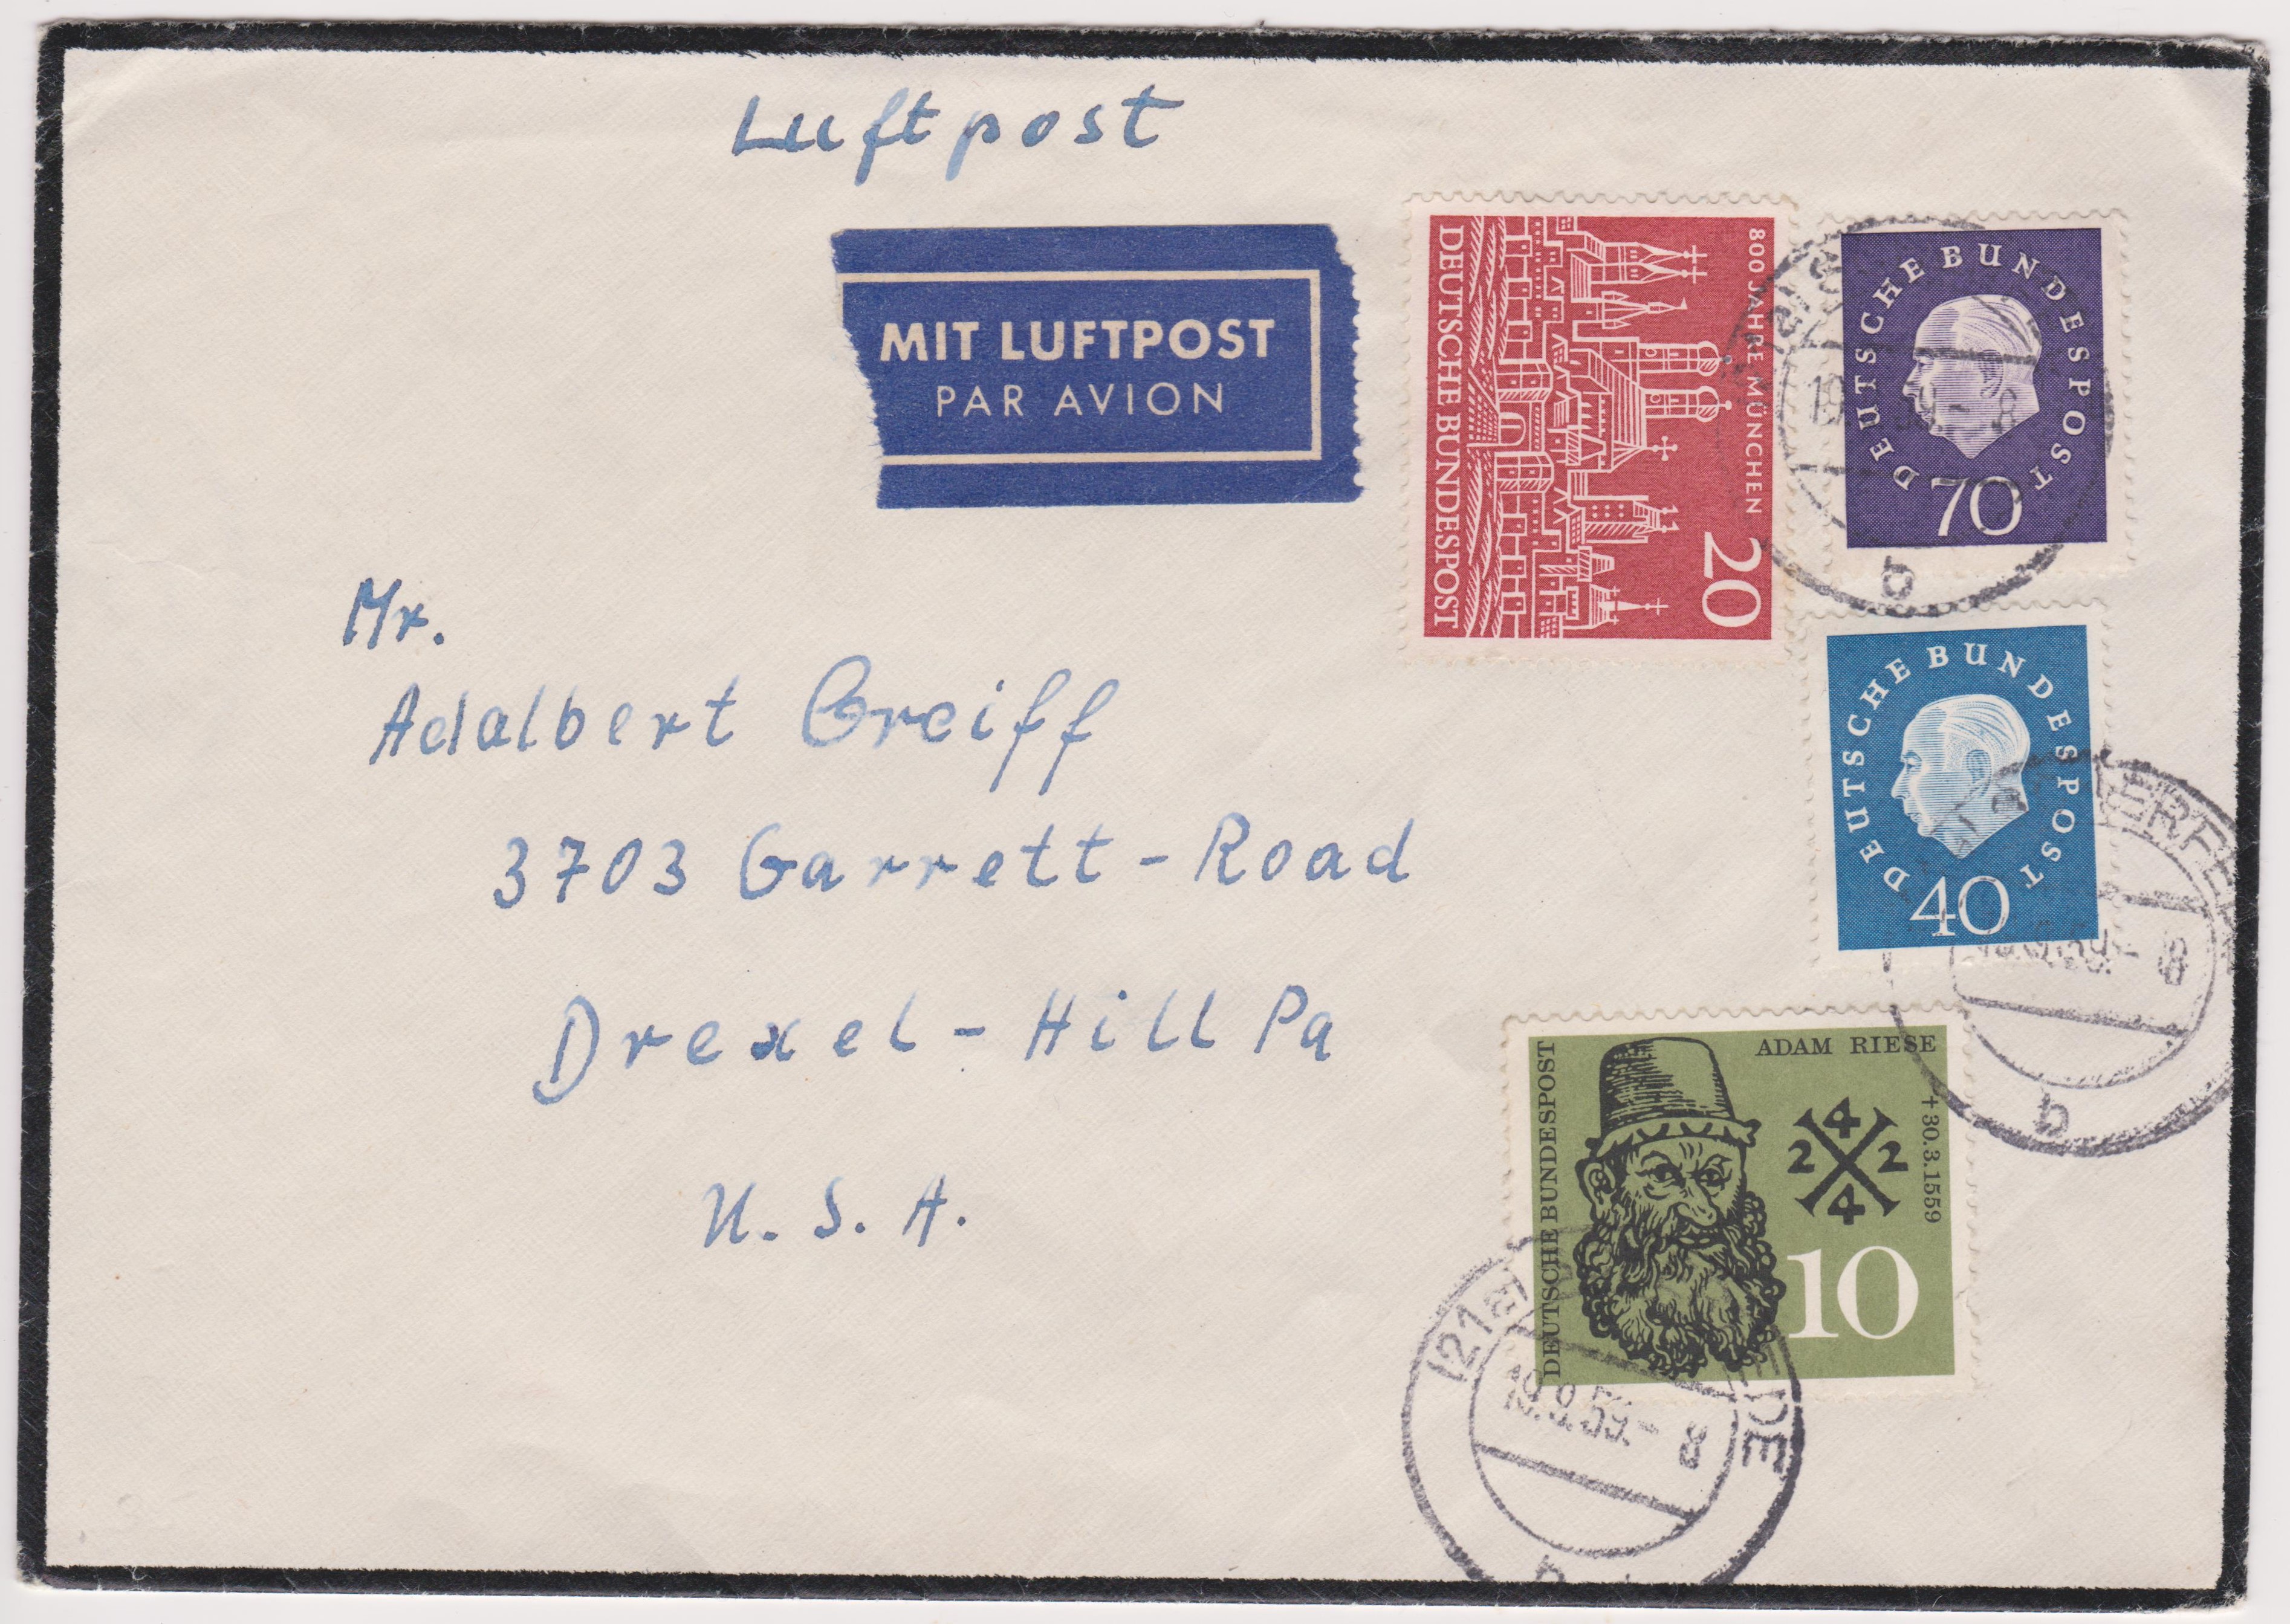 Luftpost
MIT LUFTPOST
PAR AVION
800 JAHRE MÜNCHEN
20
DEUTSCHE BUNDESPOST
DEUTSCHE BUNDESPOST
70
b
Mr.
Adalbert Greiff
3703 Garrett-Road
Drexel-Hill Pa
U.S.A.
DEUTSCHE BUNDESPOST
40
8
b
ADAM RIESE
+ 30.3.1559
4
2 2
4
10
DEUTSCHE BUNDESPOST
(21a)
DE
19.9.59.- 8
b